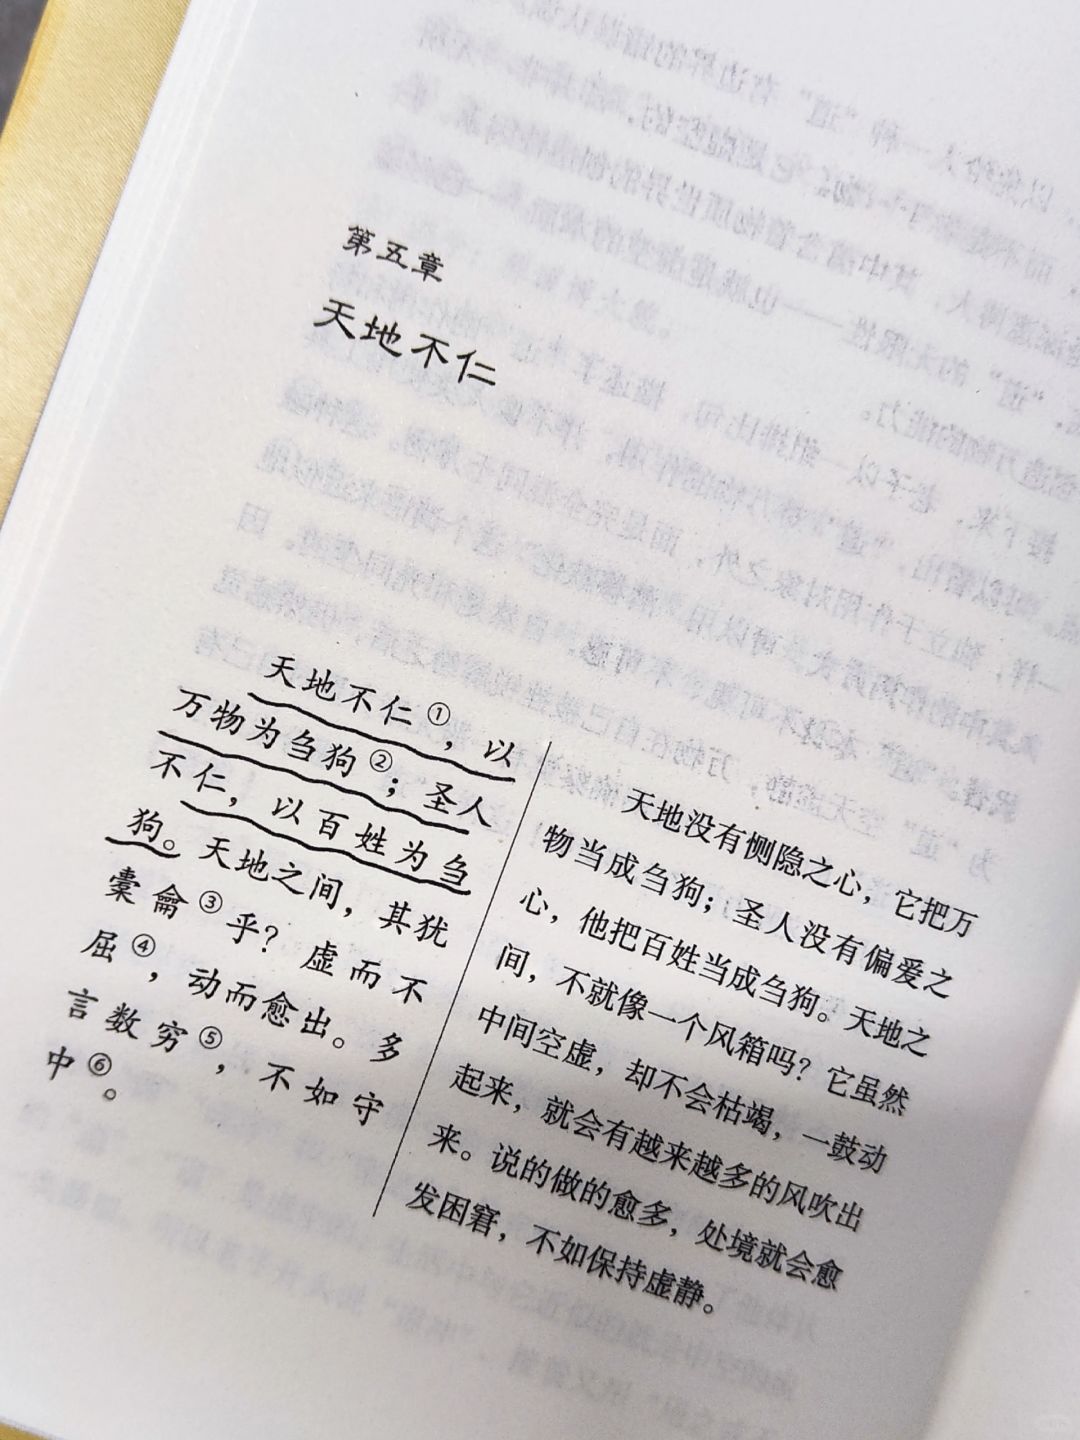 第五章
天地不仁
天地不仁①，以
万物为刍狗②；圣人
不仁，以百姓为刍
狗。天地之间，其犹
橐龠③乎？虚而不
屈④，动而愈出。多
言数穷⑤，不如守
中⑥。
天地没有恻隐之心，它把万
物当成刍狗；圣人没有偏爱之
心，他把百姓当成刍狗。天地之
间，不就像一个风箱吗？它虽然
中间空虚，却不会枯竭，一鼓动
起来，就会有越来越多的风吹出
来。说的做的愈多，处境就会愈
发困窘，不如保持虚静。